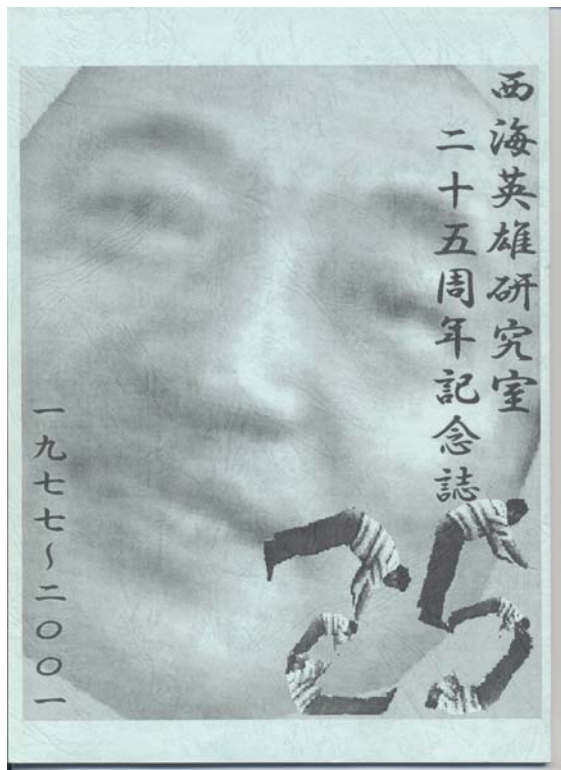 西海英雄研究室
二十五周年記念誌
一九七七～二〇〇一
25